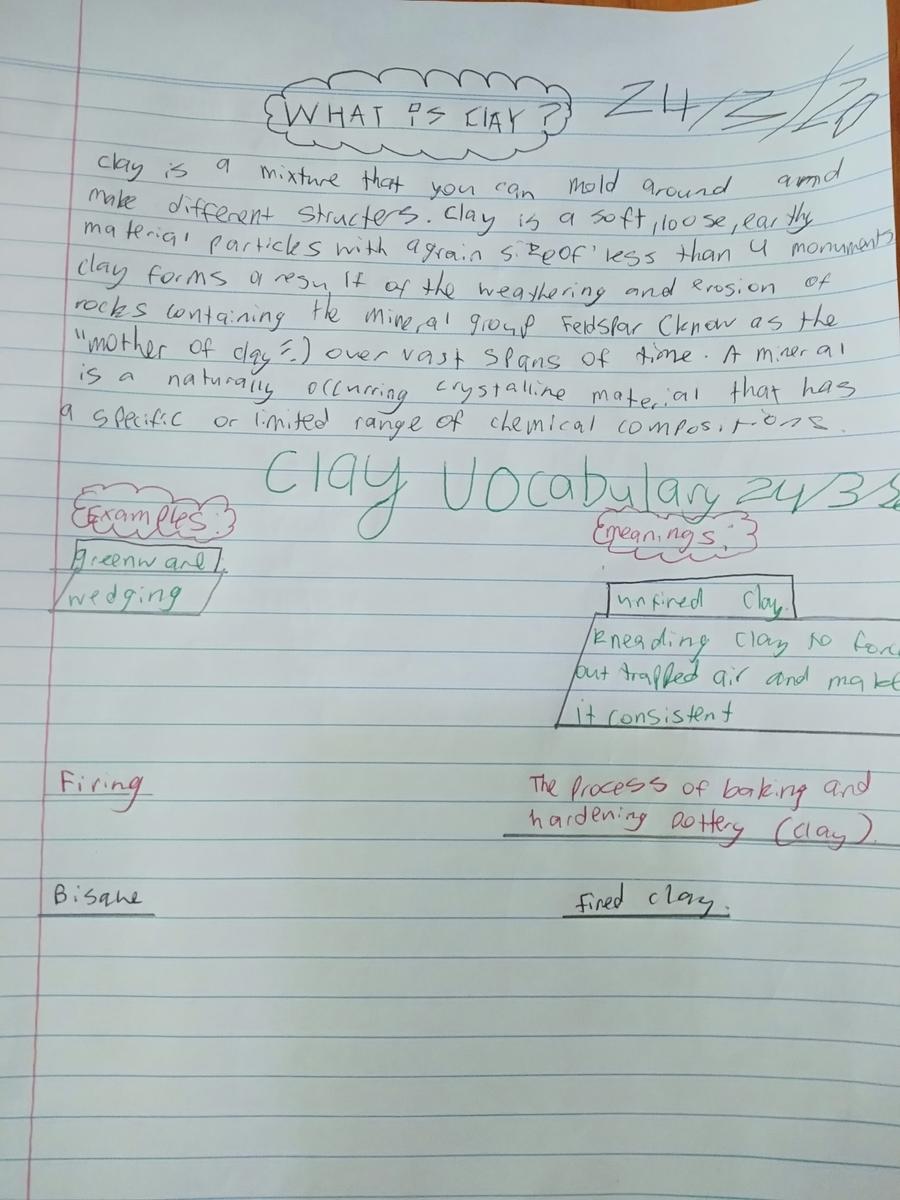 WHAT iS ClAY? 24/3/20
Clay is a mixture that you can mold around amd
make different structers. Clay is a soft, loose, earthy
material particles with a grain size of less than 4 monuments
clay forms a result of the weathering and erosion of
rocks containing the mineral group Feldspar (know as the
"mother of clay=) over vast spans of time. A mineral
is a naturally occurring crystalline material that has
a specific or limited range of chemical compositions.
Clay Vocabulary 24/3
Examples:
meanings:
greenware
unfired clay.
wedging
kneading clay to force
out trapped air and make
it consistent
Firing
The process of baking and
hardening pottery (clay).
Bisque
fired clay.